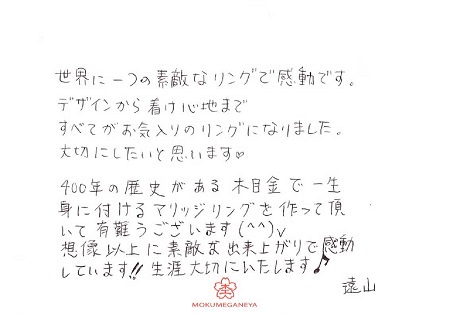 世界に一つの素敵なリングで感動です。
デザインから着け心地まで
すべてがお気入りのリングになりました。
大切にしたいと思います♡
400年の歴史がある木目金で一生
身に付けるマリッジリングを作って頂
いて有難うございます(^^)v
想像以上に素敵な出来上がりで感動
しています!!生涯大切にいたします♪
遠山
MOKUMEGANEYA